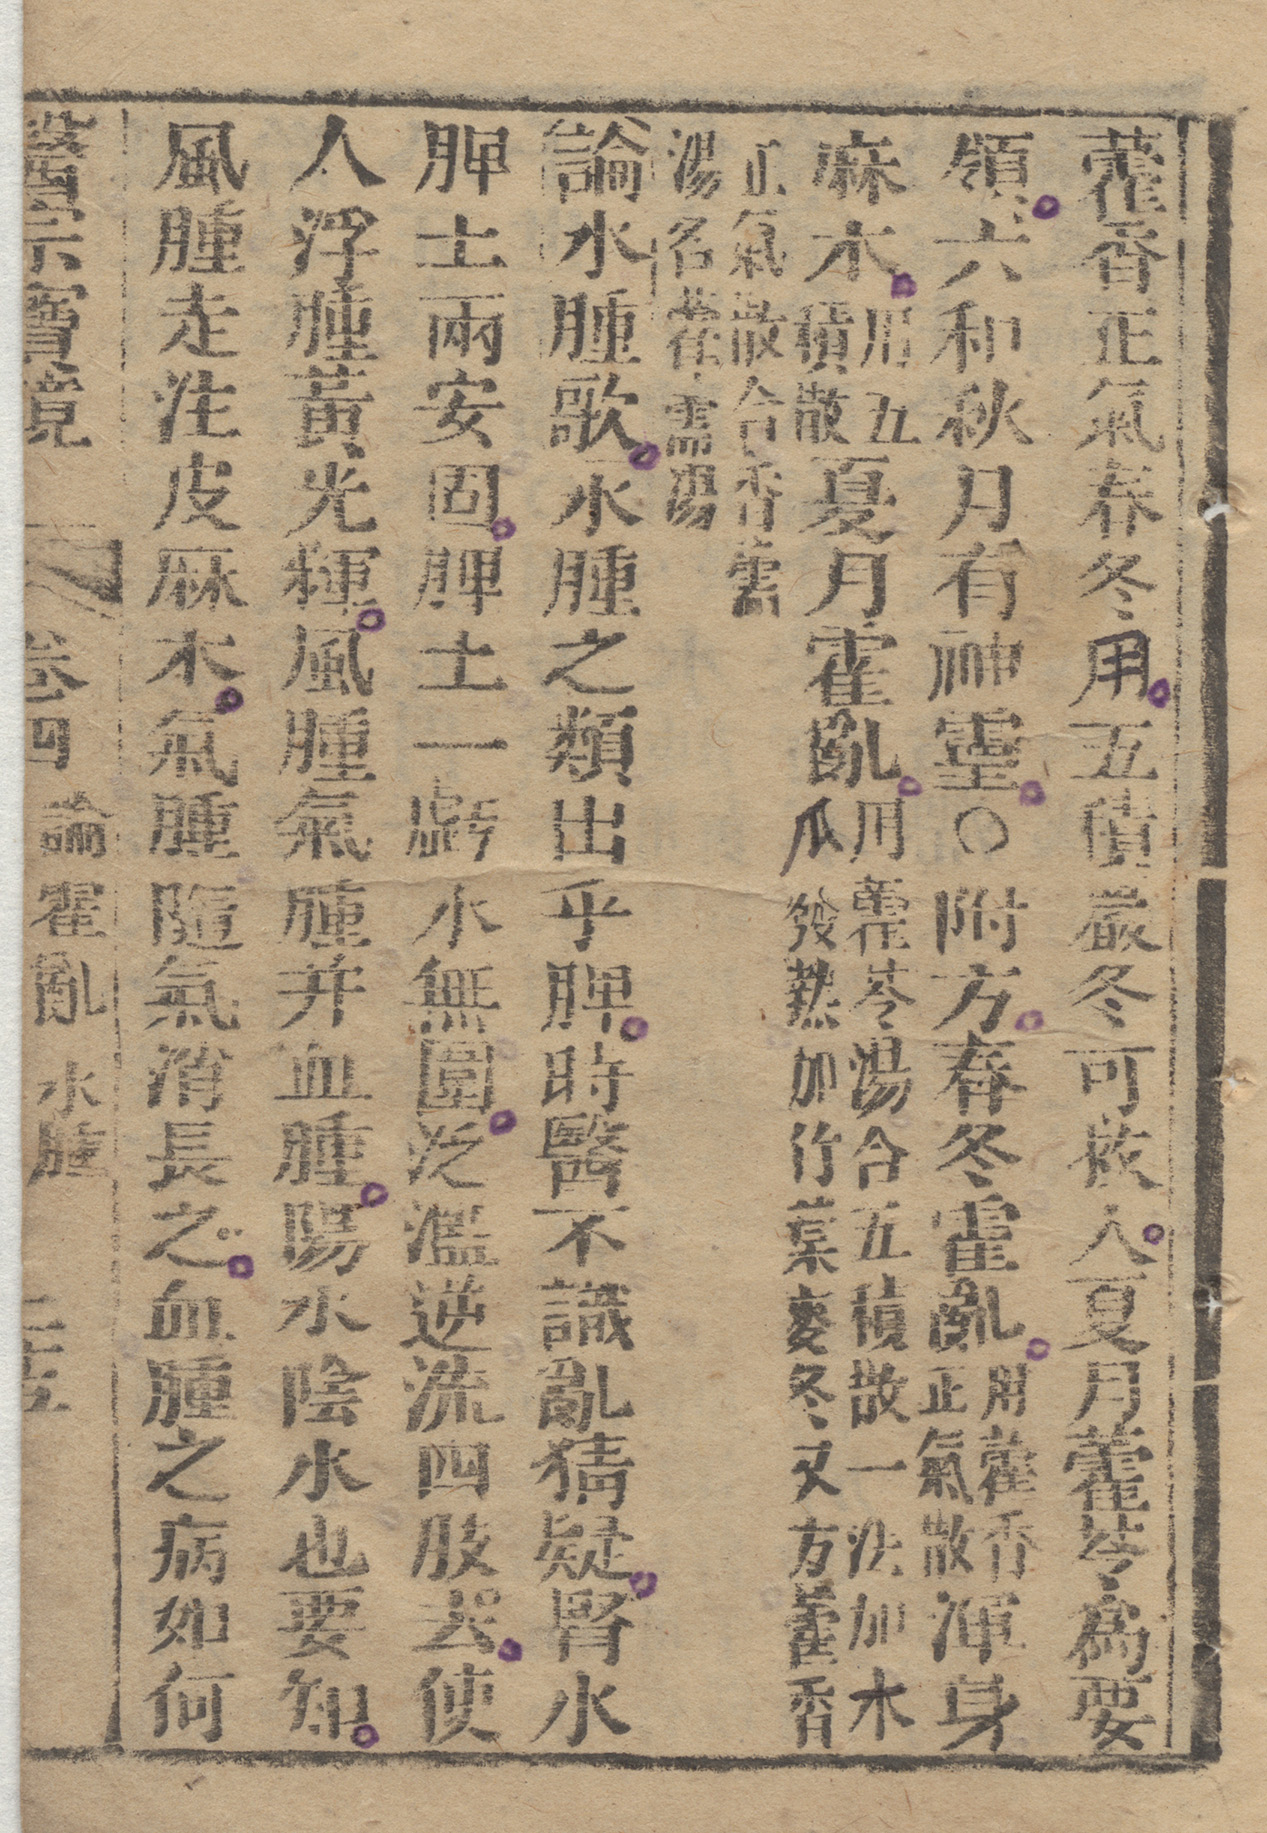 藿香正氣春冬用五積嚴冬可救人夏月藿苓為要
領六和秋月有神靈〇附方春冬霍亂用藿香正氣散渾身
麻木用五積散夏月霍亂用藿苓湯合五積散一法加木瓜發熱加竹葉麥冬又方藿香
正氣散合香薷湯名藿薷湯
論水腫歌水腫之類出乎脾時醫不識亂猜疑腎水
脾土兩安固脾土一虧水無圍泛濫逆流四肢去使
人浮腫黃光輝風腫氣腫并血腫陽水陰水也要知
風腫走注皮麻木氣腫隨氣消長之血腫之病如何
醫宗寶鏡 卷四 論霍亂 水腫 二五